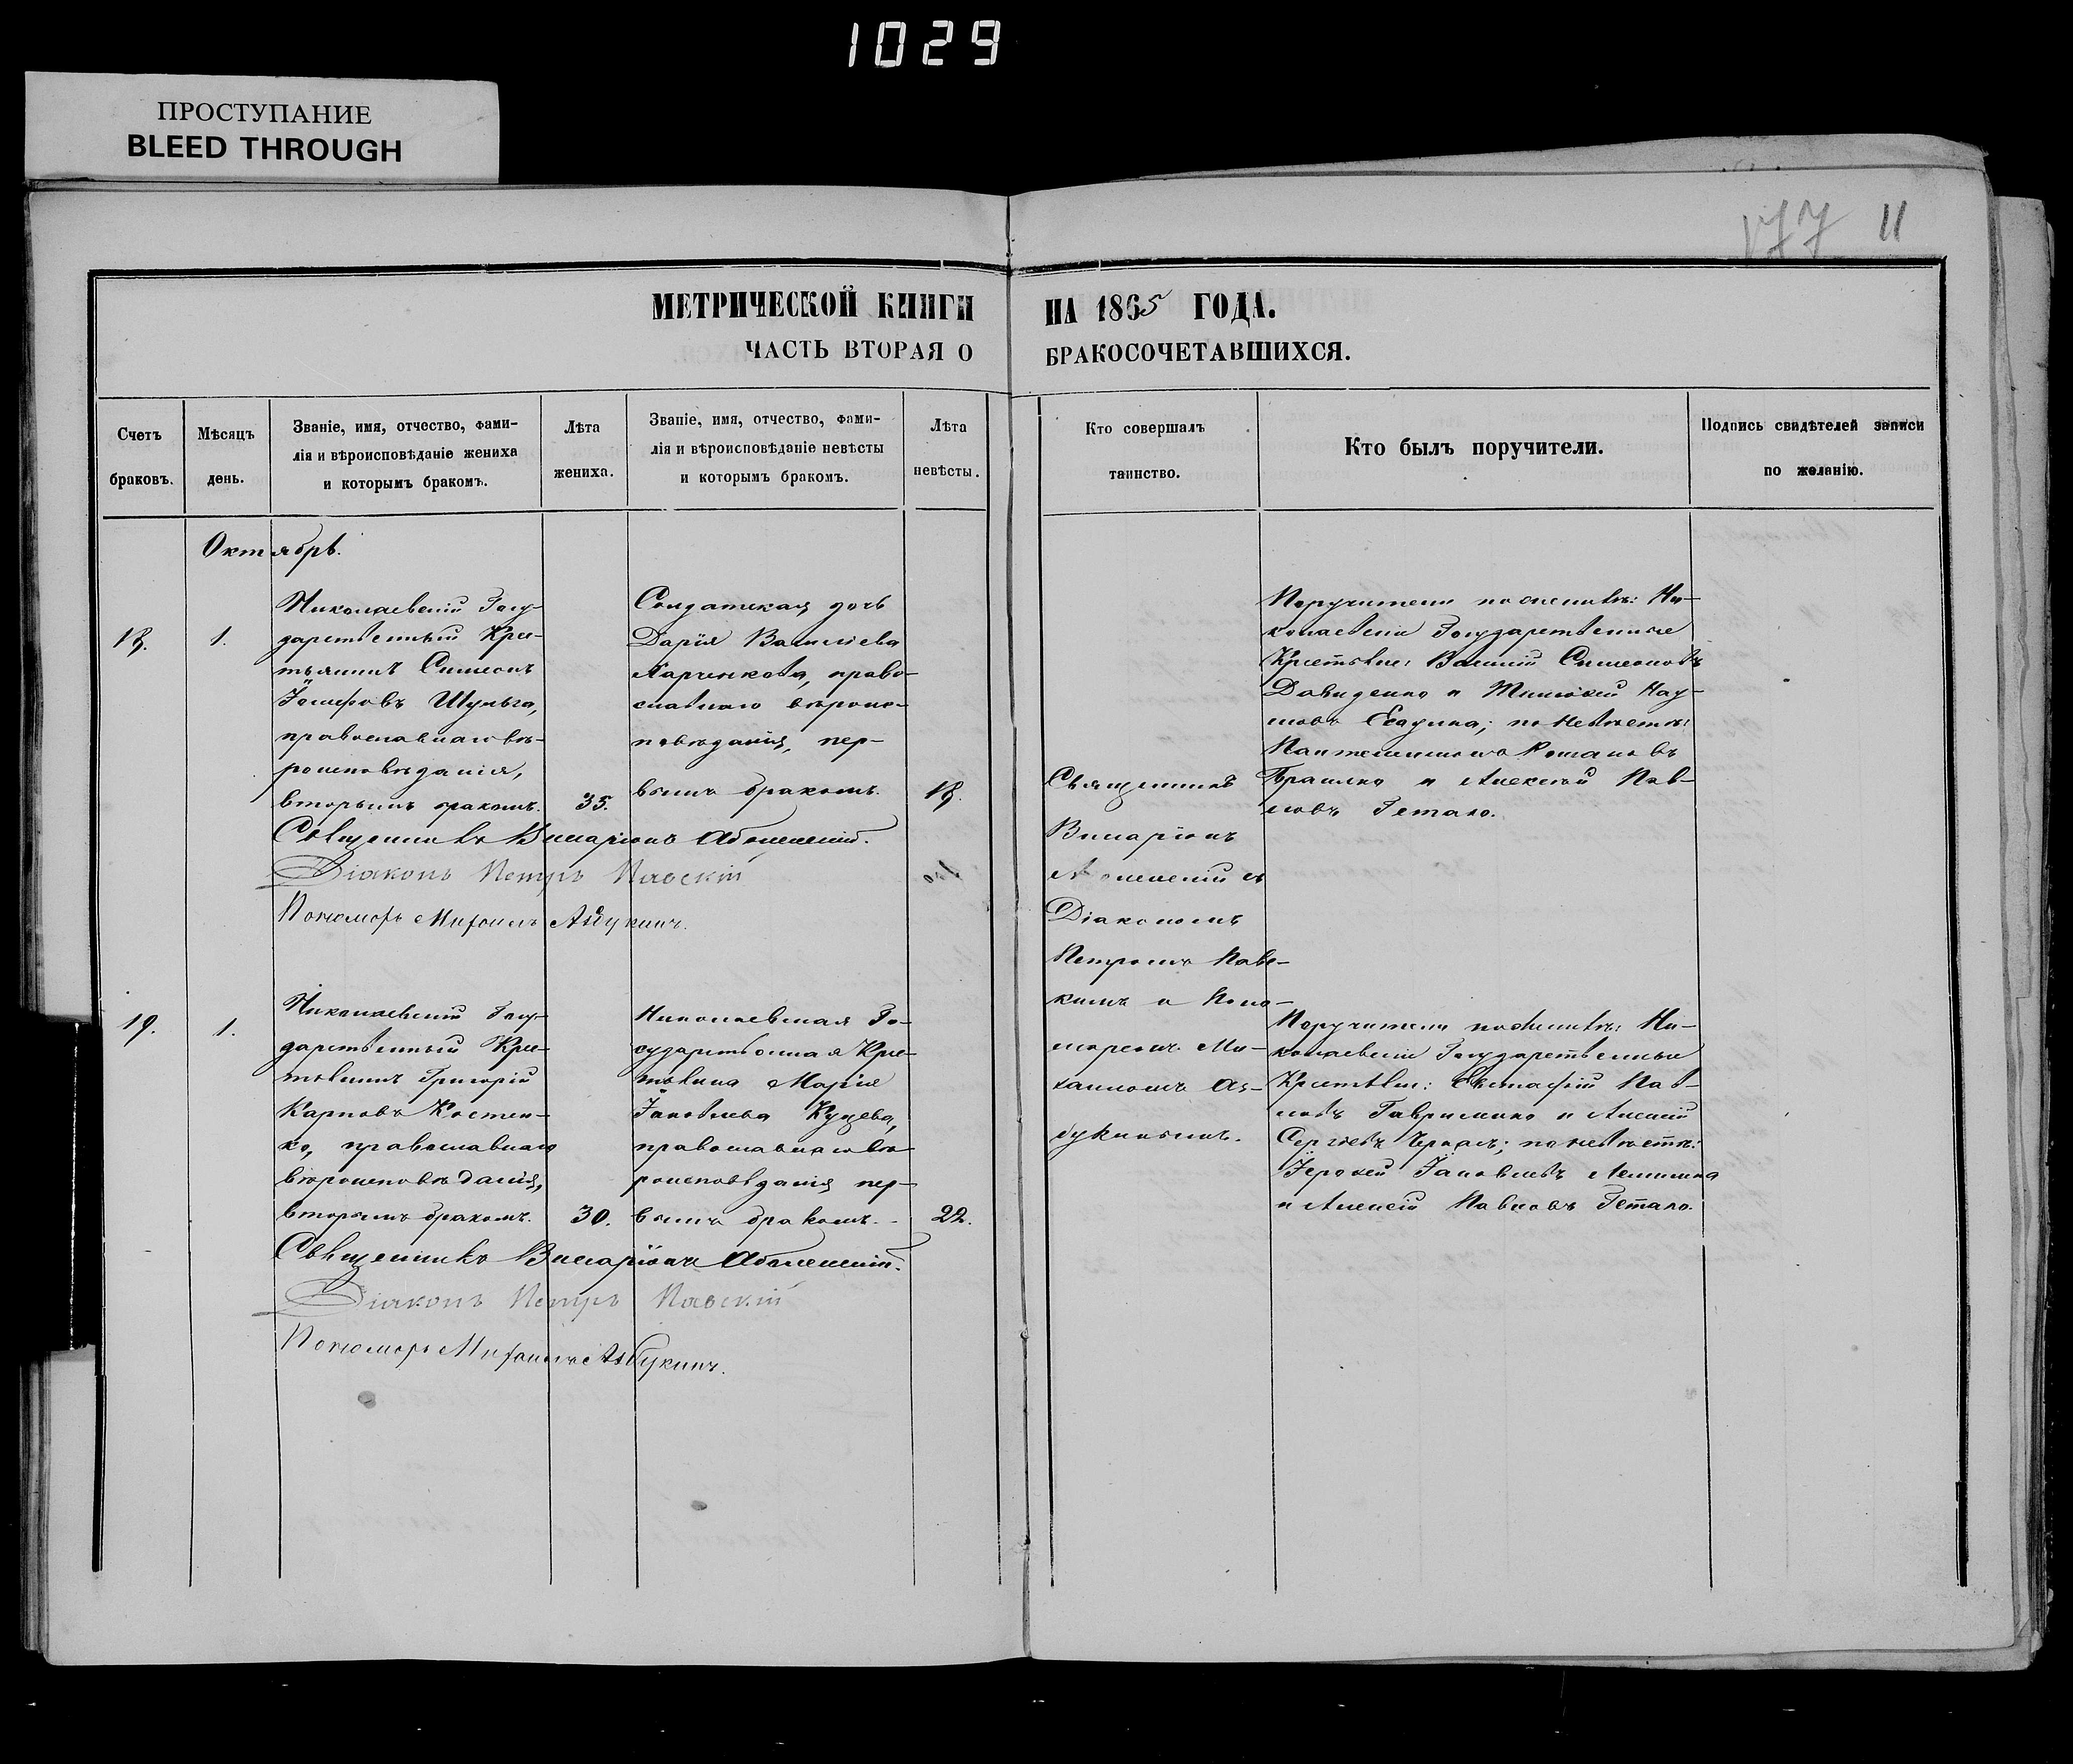 1029
ПРОСТУПАНИЕ
BLEED THROUGH
177 11
МЕТРИЧЕСКОЙ КНИГИ НА 1865 ГОДА.
ЧАСТЬ ВТОРАЯ О БРАКОСОЧЕТАВШИХСЯ.
Счетъ
браковъ.
Мѣсяцъ
день.
Званіе, имя, отчество, фами-
лія и вѣроисповѣданіе жениха
и которымъ бракомъ.
Лѣта
жениха.
Званіе, имя, отчество, фами-
лія и вѣроисповѣданіе невѣсты
и которымъ бракомъ.
Лѣта
невѣсты.
Кто совершалъ
таинство.
Кто былъ поручители.
Подпись свидѣтелей записи
по желанію.
Октябрь.
18.
1.
Николаевскій Госу-
дарственный Крес-
тьянинъ Симеонъ
Іосифовъ Шульга,
православнаго вѣ-
роисповѣданія,
вторымъ бракомъ.
35.
Солдатская дочь
Дарія Василіева
Харченкова, право-
славнаго вѣроис-
повѣданія, пер-
вымъ бракомъ.
18.
Священникъ
Виссаріонъ
съ
Діакономъ
Петромъ Павс-
кимъ и Поно-
маремъ Ми-
хаиломъ Аз-
букинымъ.
Поручители по женихѣ: Ни-
колаевскіе Государственные
Крестьяне: Василій Симеоновъ
Давиденко и Тимофей Нау-
мовъ по невѣстѣ:
Пантелеимонъ Романовъ
и Алексѣй Пав-
ловъ Гетало.
Священникъ Виссаріонъ
Діаконъ Петръ Павскій
Пономарь Михаилъ Азбукинъ.
19.
1.
Николаевскій Госу-
дарственный Крес-
тьянинъ Григорій
Карповъ Костен-
ко, православнаго
вѣроисповѣданія,
вторымъ бракомъ.
30.
Николаевская Го-
сударственная Крес-
тьянка Марія
Іаковлева Куцева,
православнаго вѣ-
роисповѣданія пер-
вымъ бракомъ.
22.
Поручители по женихѣ: Ни-
колаевскіе Государственные
Крестьяне: Евстафій Пав-
ловъ Гавриленко и Алексѣй
Сергіевъ по невѣстѣ:
Іерофей Іаковлевъ
и Алексѣй Павловъ Гетало.
Священникъ Виссаріонъ
Діаконъ Петръ Павскій
Пономарь Михаилъ Азбукинъ.